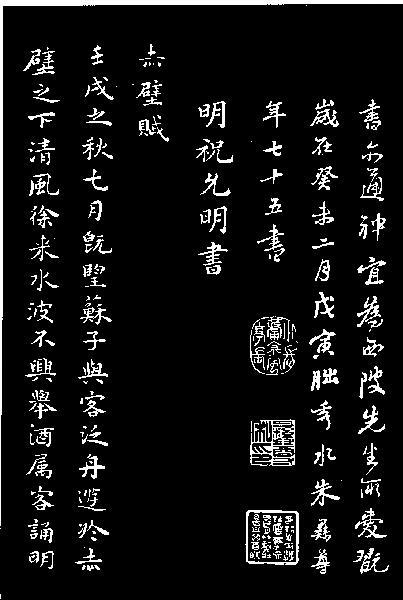 書亦通神宜為西陂先生所愛翫
歲在癸未二月戊寅朏秀水朱彝尊
年七十五書
明祝允明書
赤壁賦
壬戌之秋七月既望蘇子與客泛舟遊於赤
壁之下清風徐来水波不興舉酒属客誦明